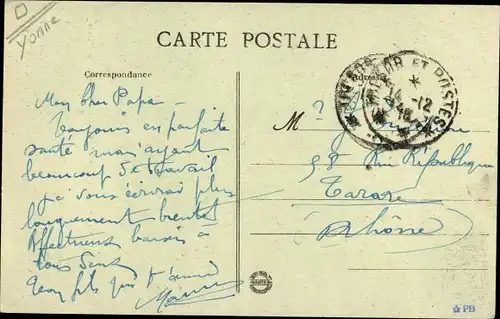 Yonne
CARTE POSTALE
Correspondance
Adresse
Mon Cher Papa -
Toujours en parfaite
santé mais ayant
beaucoup de travail
je vous écrirai plus
longuement bientôt
Affectueux baisers à
tous
ton fils qui t'
TRÉSOR ET POSTES
M
58 Rue République
Tarare
Rhône
PB